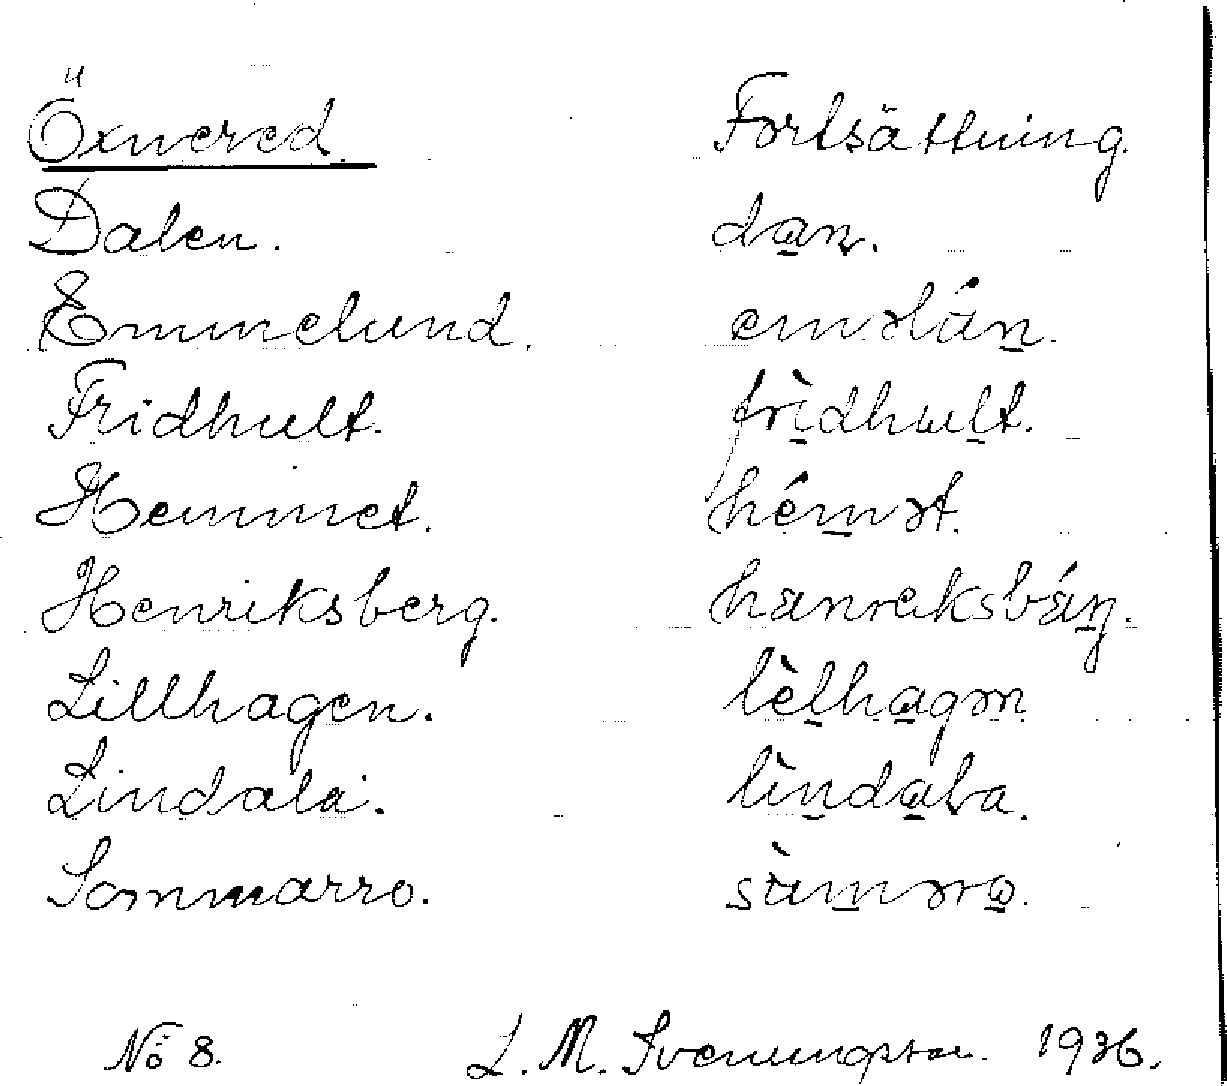 Öxnered. Fortsättning.
Dalen. dan.
Emmelund. eməlún.
Fridhult. frìdhult.
Hemmet. hémət.
Henriksberg. hanreksbárj.
Lillhagen. lèlhagən.
Lindala. lìndala.
Sommarro. sùməro.
No 8. L. M. Svenungsson. 1936.